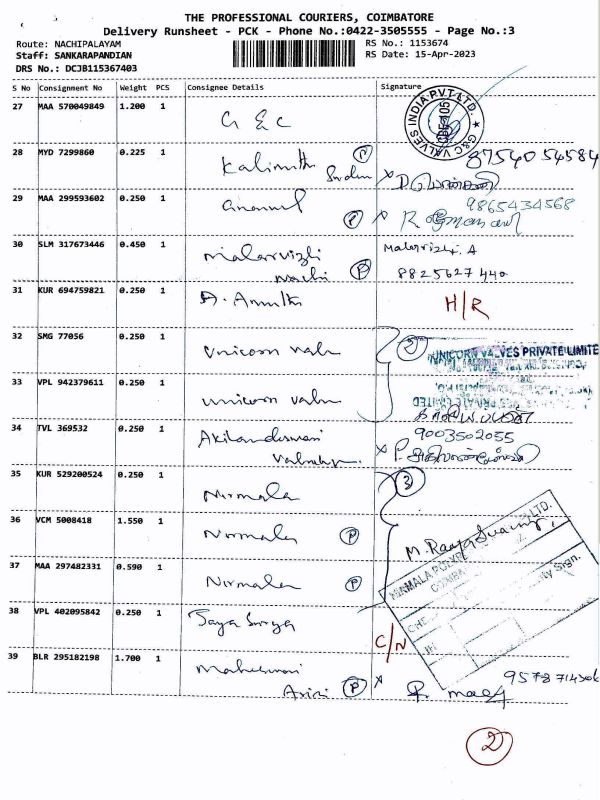 THE PROFESSIONAL COURIERS, COIMBATORE
Delivery Runsheet - PCK - Phone No.:0422-3505555 - Page No.:3
Route: NACHIPALAYAM RS No.: 1153674
Staff: SANKARAPANDIAN RS Date: 15-Apr-2023
DRS No.: DCJB115367403
S No Consignment No Weight PCS Consignee Details Signature
27 MAA 570049849 1.200 1 G & C
G&C VALVES INDIA PVT LTD.
28 MYD 7299860 0.225 1 Kalimuth
87540 54584
29 MAA 299593602 0.250 1
9865434568
P R
30 SLM 317673446 0.450 1 Malarvizhi P Malarvizhi. A
8825627440
31 KUR 694759821 0.250 1 A. H/R
32 SMG 77056 0.250 1 Unicorn valv 2
UNICORN VALVES PRIVATE LIMITE
33 VPL 942379611 0.250 1 unicorn valv
34 TVL 369532 0.250 1 Akilandeswari 9003502055
35 KUR 529200524 0.250 1 Nirmala 3
36 VCM 5008418 1.550 1 Nirmala P
37 MAA 297482331 0.590 1 Nirmala P
38 VPL 402095842 0.250 1 Jaya Surya C/N
39 BLR 295182198 1.700 1 Maheswari P
2